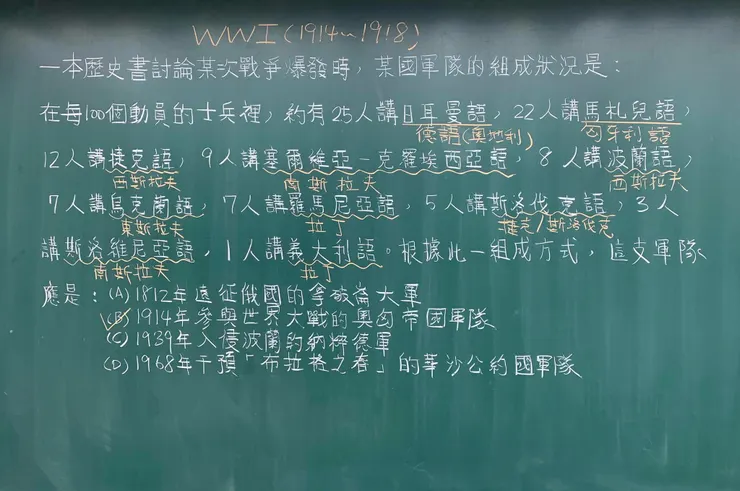 WWI(1914~1918)
一本歷史書討論某次戰爭爆發時，某國軍隊的組成狀況是：
在每100個動員的士兵裡，約有25人講日耳曼語，22人講馬札兒語，
德語(奧地利) 匈牙利語
12人講捷克語，9人講塞爾維亞－克羅埃西亞語，8人講波蘭語，
西斯拉夫 南斯拉夫 西斯拉夫
7人講烏克蘭語，7人講羅馬尼亞語，5人講斯洛伐克語，3人
東斯拉夫 拉丁 捷克/斯洛伐克
講斯洛維尼亞語，1人講義大利語。根據此一組成方式，這支軍隊
南斯拉夫 拉丁
應是：(A)1812年遠征俄國的拿破崙大軍
(B)1914年參與世界大戰的奧匈帝國軍隊
(C)1939年入侵波蘭的納粹德軍
(D)1968年干預「布拉格之春」的華沙公約國軍隊